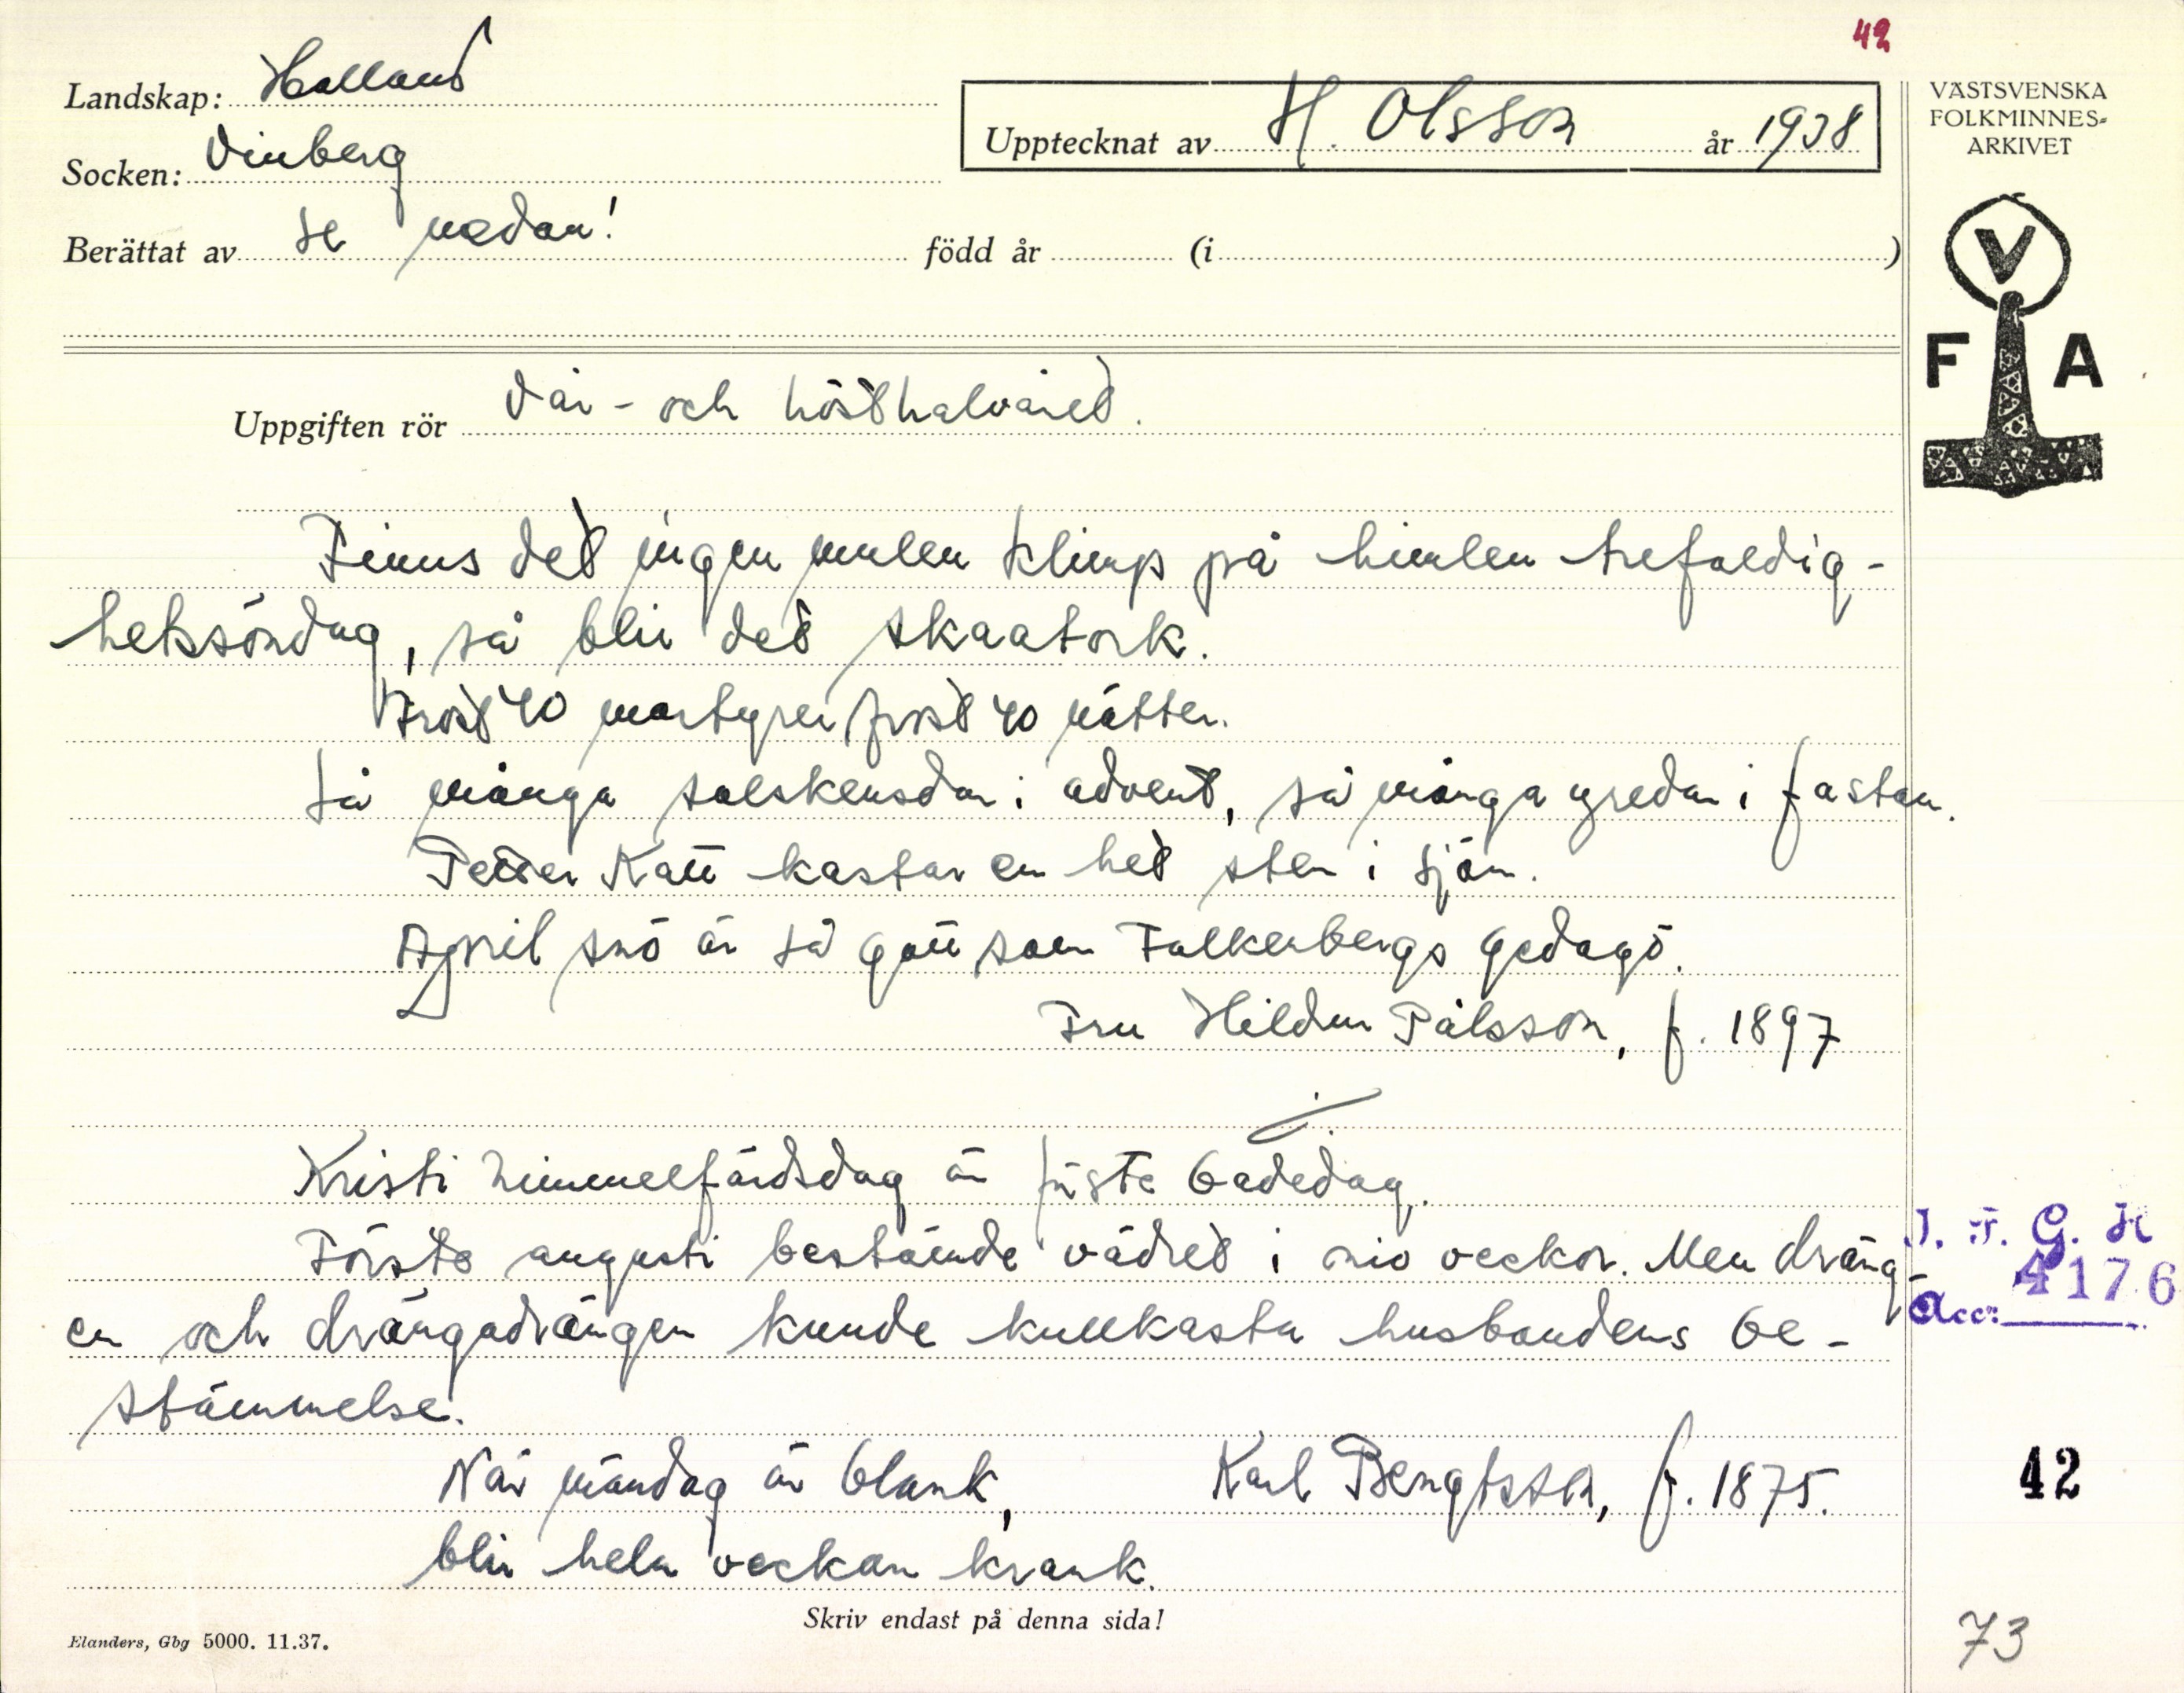 42
Landskap: Halland
Socken: Vinberg
Upptecknat av H. Olsson år 1938
Berättat av se nedan! född år (i )
VÄSTSVENSKA
FOLKMINNES-
ARKIVET
V
F A
Uppgiften rör Vår- och hösthalvåret.
Finns det ingen mulen klimp på himlen trefaldig-
hetssöndag, så blir det skaatork.
Frost 40 martyrer frost 40 nätter.
Så många solskensdar i advent, så många yredar i fastan.
Petter Katt kastar en het sten i sjön.
April snö är så gott som Falkenbergs gedagö.
Fru Hildur Pålsson, f. 1897
Kristi himmelfärdsdag är första badedag.
Första augusti bestämde vädret i nio veckor. Men dräng
en och drängadrängen kunde kullkasta husbondens be-
stämmelse.
När måndag är blank, Karl Bengtsson, f. 1875.
blir hela veckan krank.
I. F. G. H
Acc: 4176
42
73
Skriv endast på denna sida!
Elanders, Gbg 5000. 11.37.